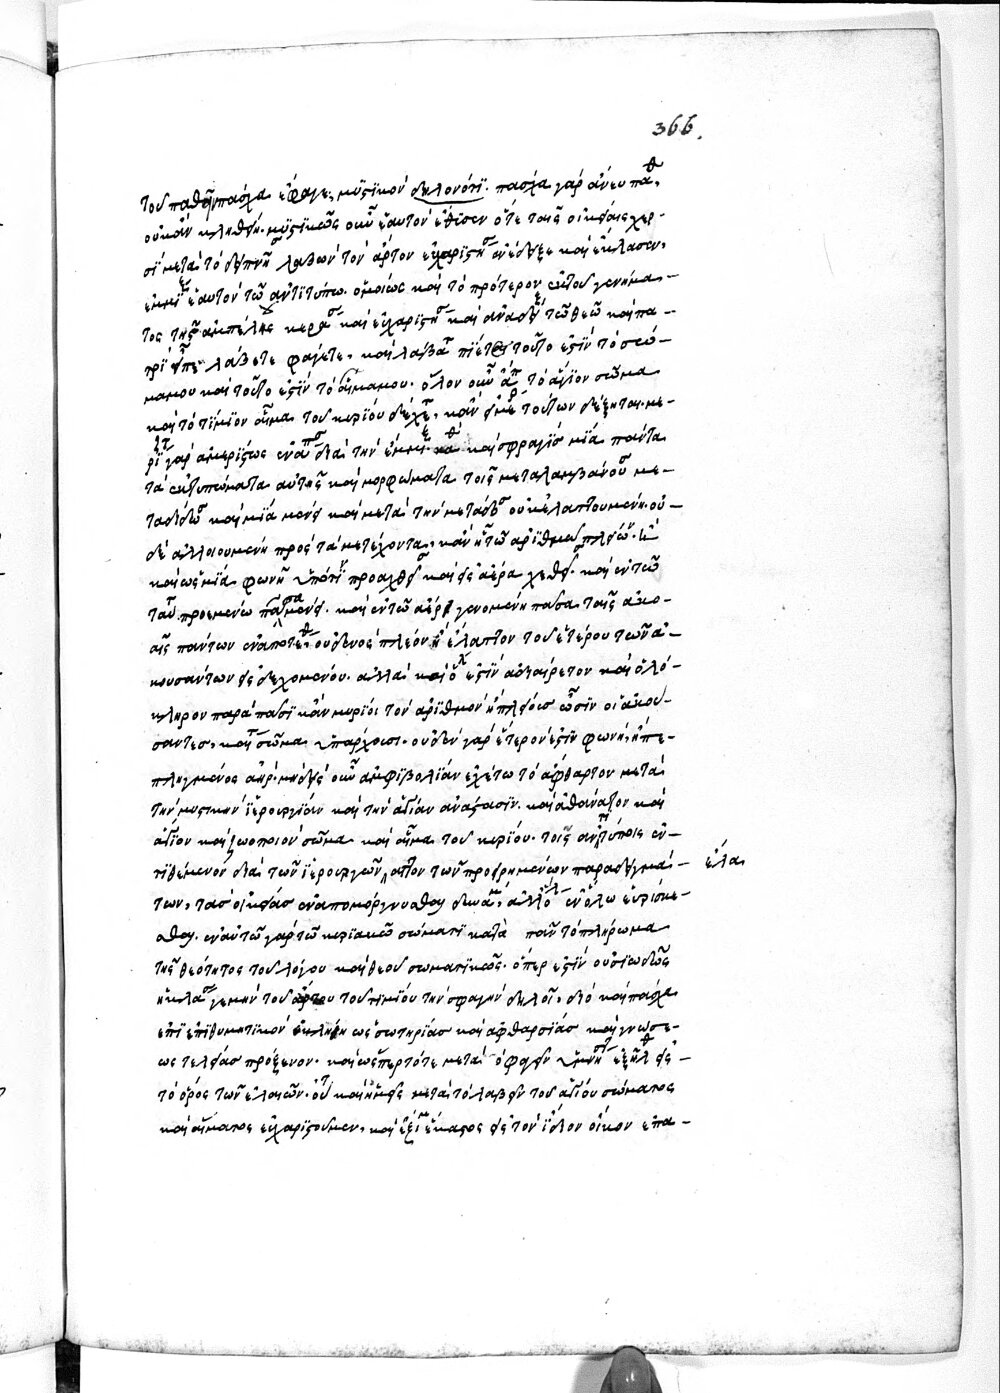 366.
τοῦ παθεῖν πάσχα ἔφαγε, μυστικὸν δηλονότι· πάσχα γὰρ ἄνευ πάθ,
οὐκ ἂν κληθῇ· μυστικῶς οὖν ἑαυτὸν ἔθυσεν ὅτε ταῖς οἰκείαις χερ-
σὶ μετὰ τὸ δειπνῆσ λαβὼν τὸν ἄρτον εὐχαριστήσ ἀνέδειξε καὶ ἔκλασεν,
ἐμμίξ ἑαυτὸν τῷ ἀντιτύπῳ· ὁμοίως καὶ τὸ πότηριον ἐκ τοῦ γενήμα-
τος τῆς ἀμπέλου κεράσ καὶ εὐχαριστήσ καὶ ἀναδείξ τῷ θεῷ καὶ πα-
τρὶ εἶπε λάβετε φάγετε, καὶ λάβετ πίετε τοῦτό ἐστιν τὸ σῶ-
μα μου καὶ τοῦτό ἐστιν τὸ αἷμά μου· ὅλον οὖν ἅπ τὸ ἅγιον σῶμα
καὶ τὸ τίμιον αἷμα τοῦ κυρίου δέχετ, κἂν εἰ μέρ τούτων δέξηται· με-
ρίζετ γὰρ ἀμερίστως ἐν ἅπασ διὰ τὴν ἔμμιξ· καθ καὶ σφραγὶς μία πάντα
τὰ ἐκτυπώματα αὐτῆς καὶ μορφώματα τοῖς μεταλαμβάνουσ με-
ταδίδωσ καὶ μία μένει καὶ μετὰ τὴν μετάδοσ οὐκ ἐλαττουμένη· οὐ-
δὲ ἀλλοιουμένη πρὸς τὰ μετέχοντα, κἂν τῷ ἀριθμῷ πλείω εἴη
καὶ ὡς μία φωνὴ ὑπό τιν προαχθεῖσ καὶ εἰς ἀέρα χεθεῖσ· καὶ ἐν τῷ
ταύτ προεμένῳ πᾶσα μένει· καὶ ἐν τῷ ἀέρι γενομένη πᾶσα ταῖς ἀκο-
αῖς πάντων ἐναποτέθ, οὐδενὸς πλέον ἢ ἔλαττον τοῦ ἑτέρου τῶν ἀ-
κουσάντων εἰσδεχομένου· ἀλλὰ καὶ ὅλ ἐστὶν ἀδιαίρετον καὶ ὁλό-
κληρον παρὰ πᾶσι κἂν μυρίοι τὸν ἀριθμὸν ἢ πλείους ὦσιν οἱ ἀκού-
σαντες, καίτ σῶμα ὑπάρχουσα· οὐδὲν γὰρ ἕτερον ἐστὶν φωνὴ, ἢ πε-
πληγμένος ἀήρ· μηδεὶς οὖν ἀμφιβολίαν ἐχέτω τὸ ἄφθαρτον μετὰ
τὴν μυστικὴν ἱερουργίαν καὶ τὴν ἁγίαν ἀνάστασιν· καὶ ἀθάνατον καὶ
ἅγιον καὶ ζωοποιὸν σῶμα καὶ αἷμα τοῦ κυρίου· τοῖς ἀντιτύποις ἐν-
τιθέμενον διὰ τῶν ἱερουργιῶν, ἀττον τῶν προειρημένων παραδειγμά-
ἔλα
των, τὰς οἰκείας ἐναπομόργνυσθαι δυνάμ, ἀλλ ὅλ ἐν ὅλῳ εὑρίσκε-
σθαι· ἐν αὐτῷ γὰρ τῷ κυριακῷ σώματι κατὰ πᾶν τὸ πλήρωμα
τῆς θεότητος τοῦ λόγου καὶ θεοῦ σωματικῶς· ὅπερ ἐστὶν οὐσιωδῶς
ἡ κλάσ γε μὴν τοῦ ἄρτου τοῦ τιμίου τὴν σφαγὴν δηλοῖ, διὸ καὶ πάσχα
ἐπὶ ἐπιθυμητικὸν ἐκλήθη ὡς σωτηρίας καὶ ἀφθαρσίας καὶ γνώσε-
ως τελείας πρόξενον· καὶ ὥσπερ τότε μετὰ ὃ φαγεῖν ὑμνήσ ἐξῆλθ εἰς
τὸ ὄρος τῶν ἐλαιῶν· οὕτ καὶ ἡμεῖς μετὰ τὸ λαβεῖν τοῦ ἁγίου σώματος
καὶ αἵματος εὐχαριστοῦμεν, καὶ ἔξιμ ἕκαστος εἰς τὸν ἴδιον οἶκον ἐπα-